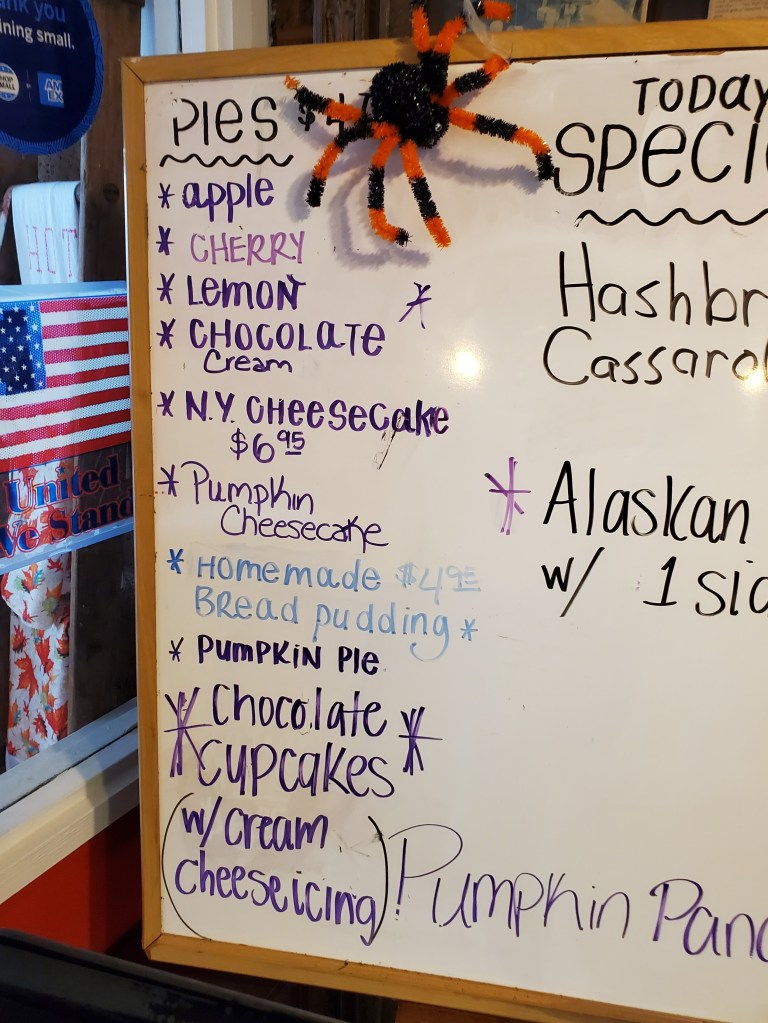 ank you
ining small.
SHOP
SMALL
AM
EX
HOT
United
We Stand
PIES $4
* apple
* CHERRY
* LEMON *
* CHOCOLATE
Cream
* N.Y. CHEESECAKE
$6 95
* Pumpkin
Cheesecake
* Homemade $4 95
Bread pudding *
* PUMPKIN PIE
* Chocolate *
Cupcakes
(w/ cream
cheese icing)!
TODAY
SPECI
Hashbr
Cassarol
* Alaskan
w/ 1 sid
Pumpkin Panc